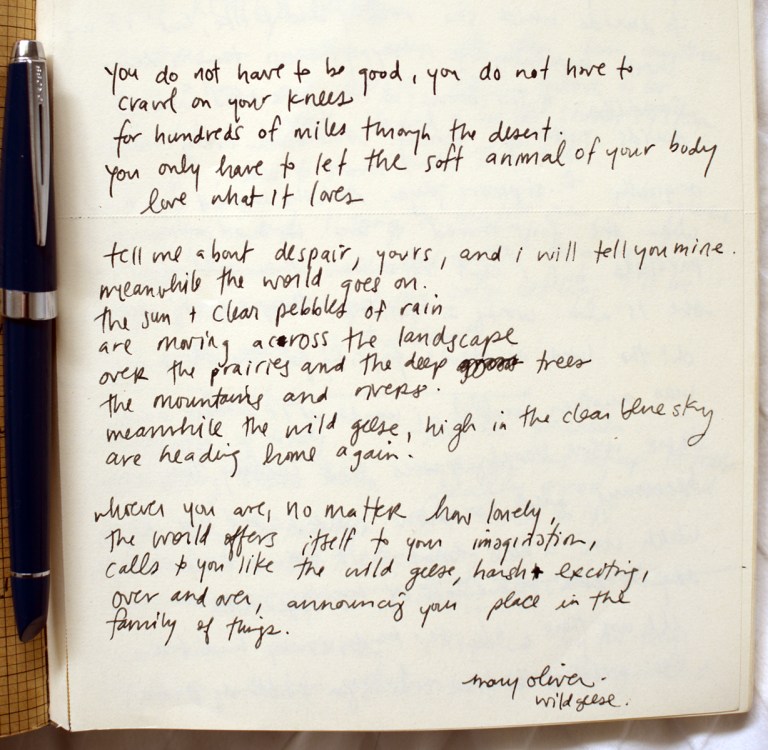 you do not have to be good, you do not have to
crawl on your knees
for hundreds of miles through the desert.
you only have to let the soft animal of your body
love what it loves
tell me about despair, yours, and i will tell you mine.
meanwhile the world goes on.
the sun + clear pebbles of rain
are moving across the landscape
over the prairies and the deep trees
the mountains and rivers.
meanwhile the wild geese, high in the clear blue sky
are heading home again.
whoever you are, no matter how lonely,
the world offers itself to your imagination,
calls to you like the wild geese, harsh + exciting,
over and over, announcing your place in the
family of things.
mary oliver.
wild geese.